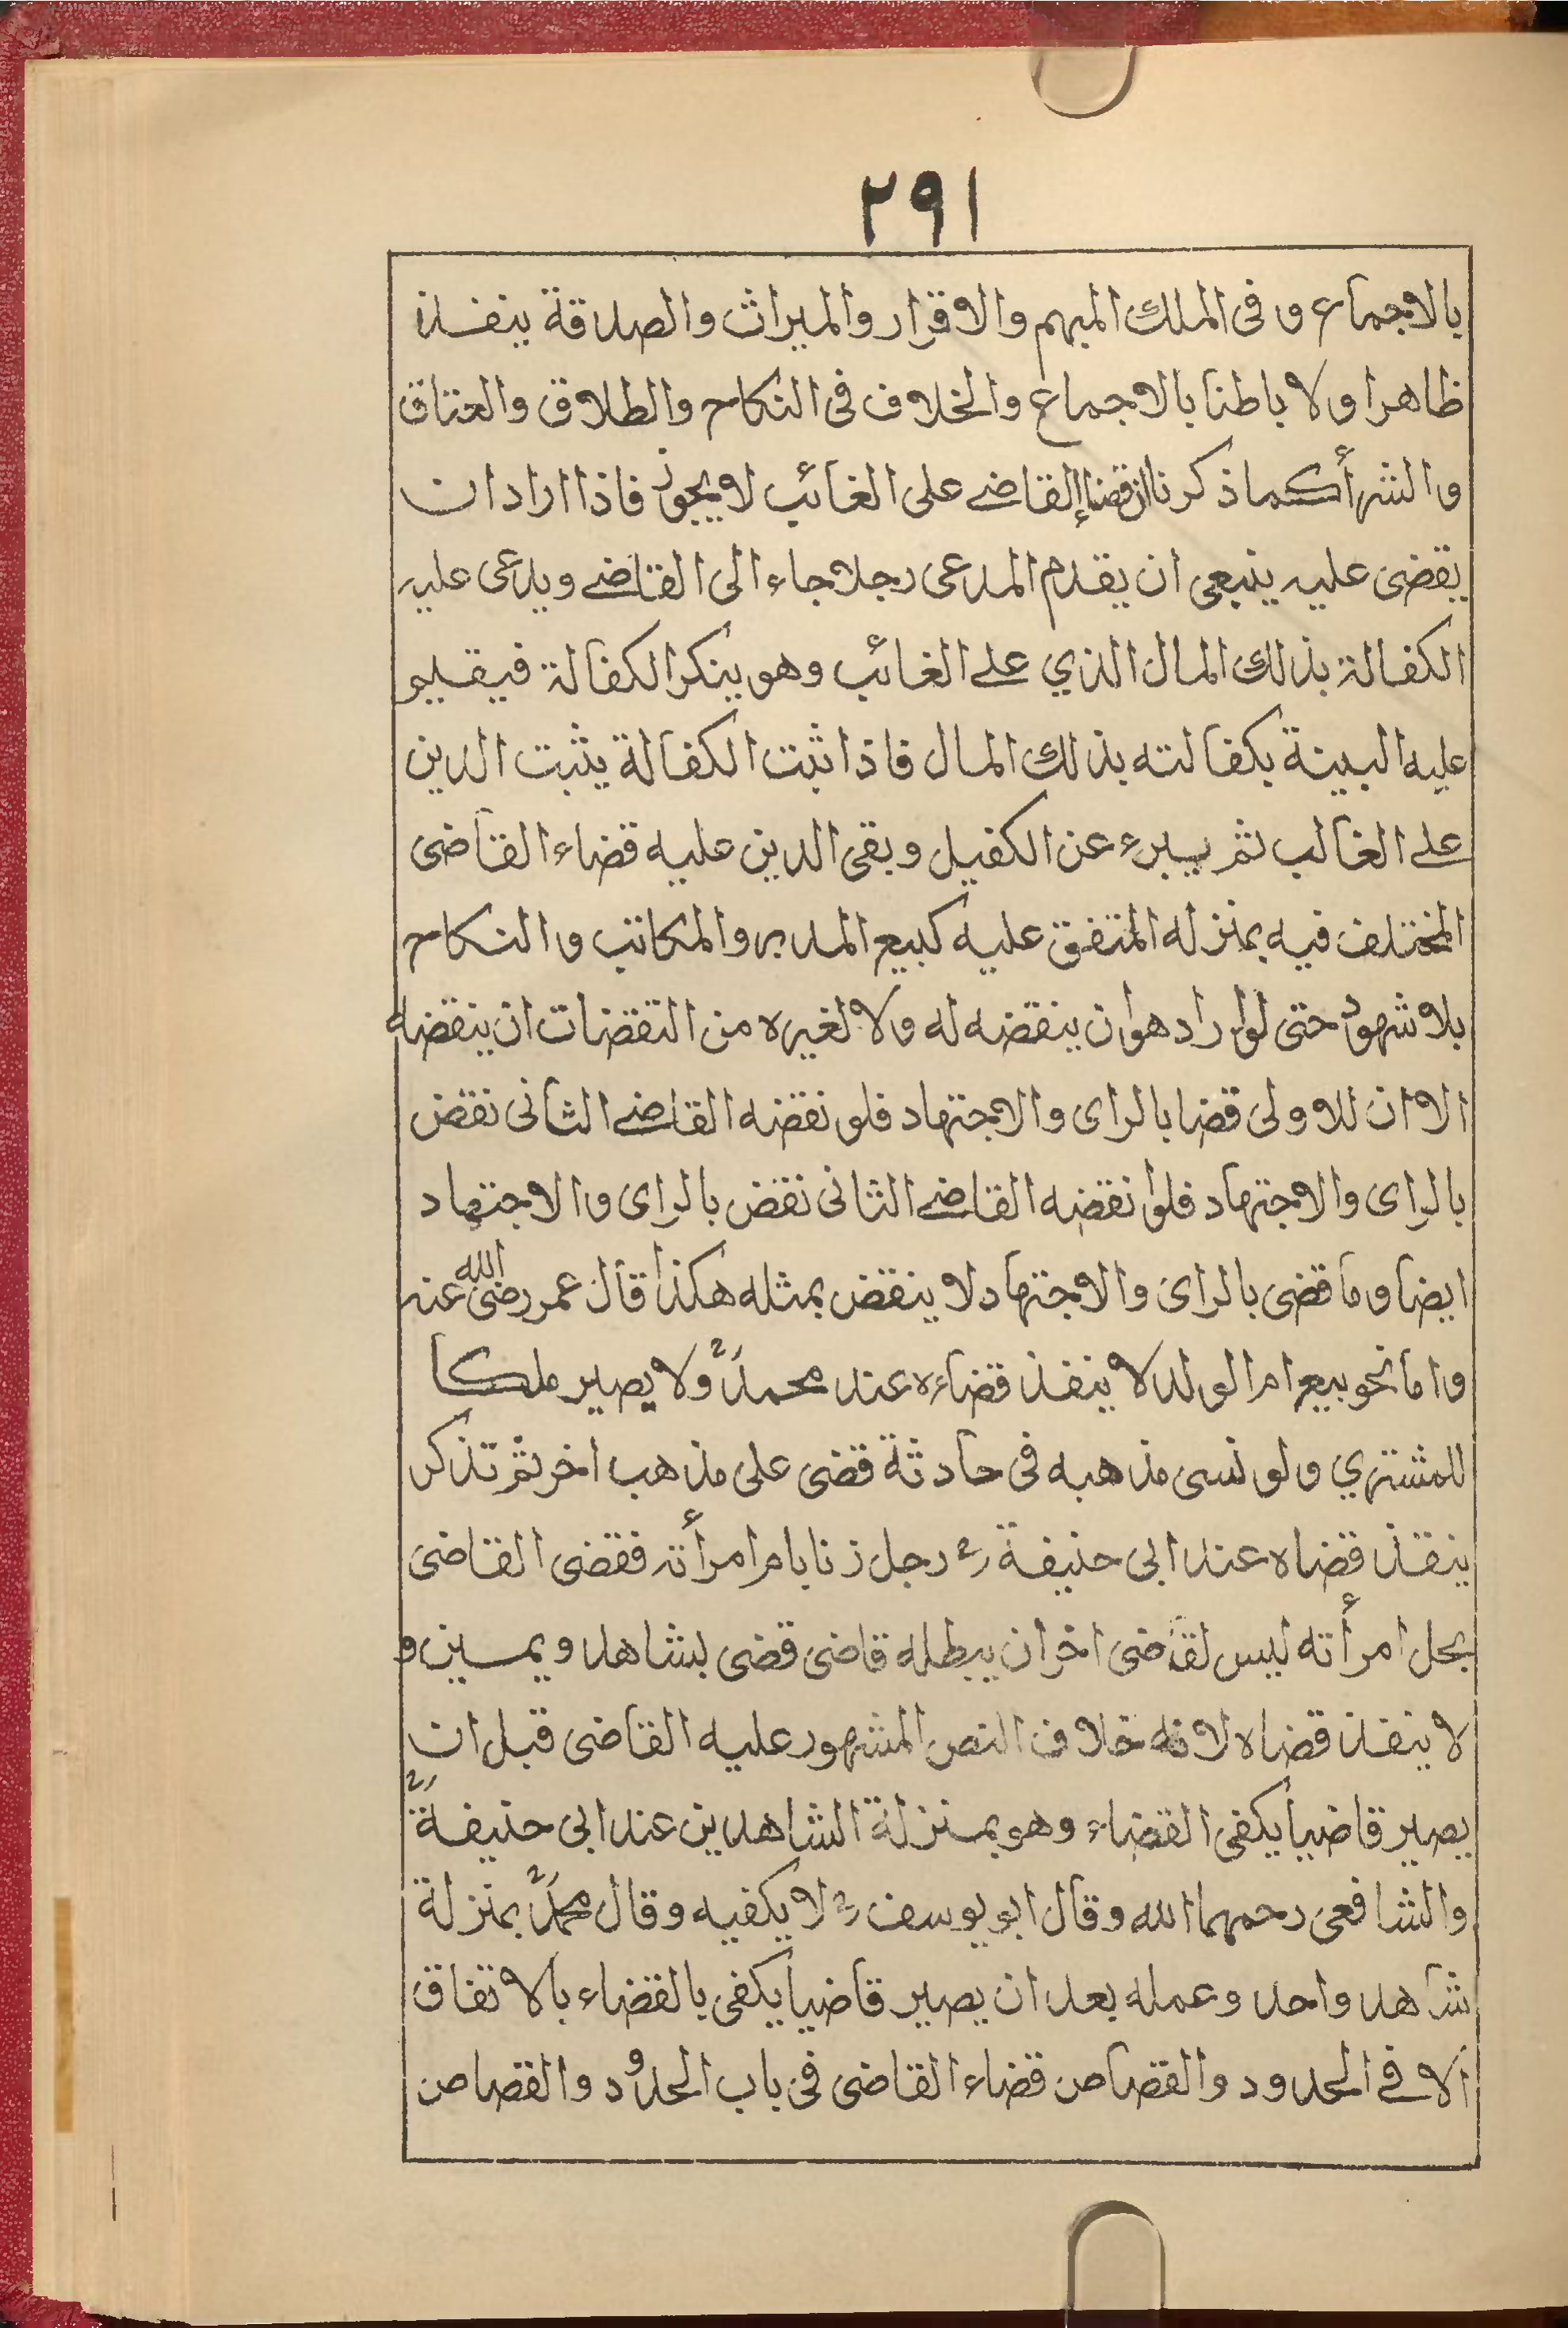 ٢٩١
بالاجماع و فى الملك المبهم والاقرار والميراث والصدقة ينفذ
ظاهرا و لا باطنا بالاجماع والخلاف فى النكاح والطلاق والعتاق
والشرأ كما ذكرنا ان قضاء القاضے على الغائب لا يجوز فاذا اراد ان
يقضى عليه ينبغى ان يقدم المدعى رجلا جاء الى القاضے ويدعى عليه
الكفالة بذلك المال الذي علے الغائب وهو ينكر الكفالة فيقيم
عليه البينة بكفالته بذلك المال فاذا ثبت الكفالة يثبت الدين
علے الغالب ثم يبرء عن الكفيل وبقى الدين عليه قضاء القاضى
المختلف فيه بمنزله المتفق عليه كبيع المدبر والمكاتب والنكاح
بلا شهود حتى لو اراد هو ان ينقضه له ولا لغيره من النقضات ان ينقضه
الا ان للاولى قضا بالراى والاجتهاد فلو نقضه القاضے الثانى نقض
بالراى والاجتهاد فلو نقضه القاضے الثانى نقض بالراى والاجتهاد
ايضا وما قضى بالراى والاجتهاد لا ينقض بمثله هكذا قال عمر رضى الله عنه
واما نحو بيع ام الولد لا ينفذ قضاءه عند محمدؒ ولا يصير ملكا
للمشتري ولو نسى مذهبه فى حادثة قضى على مذهب اخر ثم تذكر
ينقذ قضاه عند ابى حنيفة رح رجل زنا بام امرأته فقضى القاضى
بحل امرأته ليس لقاضى اخر ان يبطله قاضى قضى بشاهد ويمين و
لا ينفذ قضاه لانه خلاف النص المشهور عليه القاضى قبل ان
يصير قاضيا يكفى القضاء وهو بمنزلة الشاهدين عند ابى حنيفةؒ
والشافعى رحمهما الله وقال ابو يوسف رح لا يكفيه وقال محمدؒ بمنزلة
شاهد واحد وعمله بعد ان يصير قاضيا يكفى بالقضاء بالاتفاق
الا فے الحدود والقصاص قضاء القاضى فى باب الحدود والقصاص